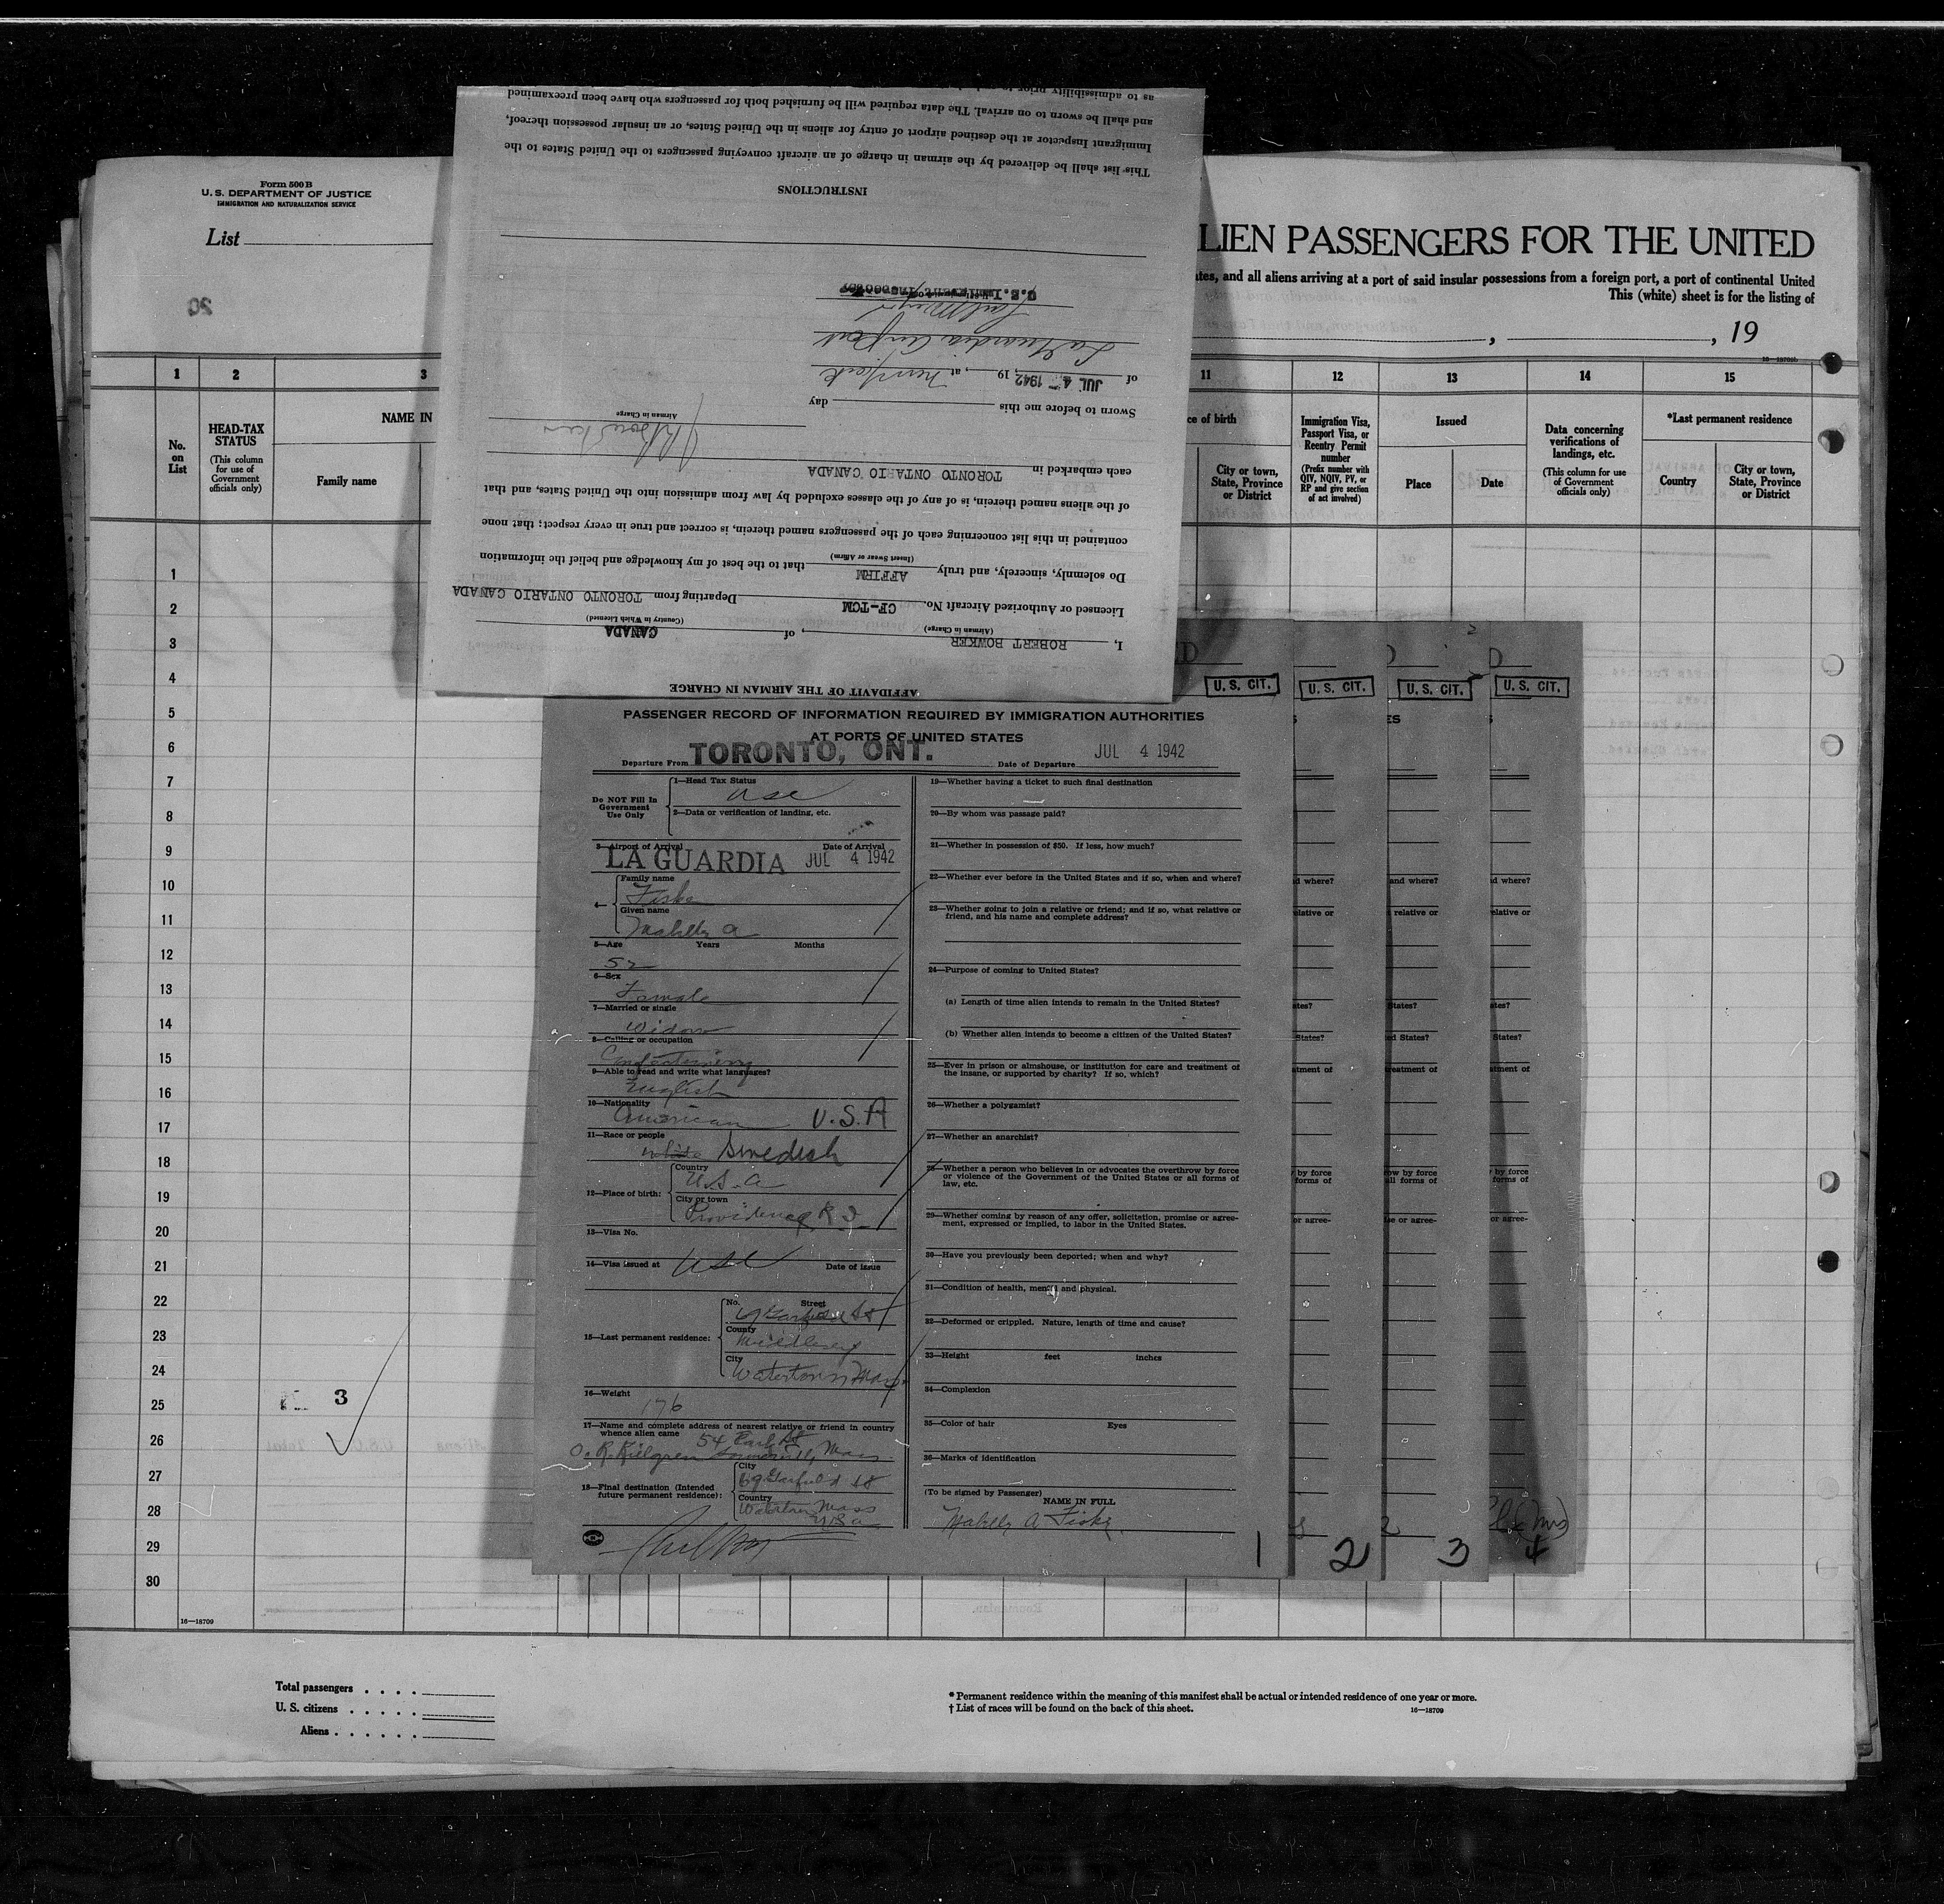 Form 500 B
U. S. DEPARTMENT OF JUSTICE
IMMIGRATION AND NATURALIZATION SERVICE
List
20
LIEN PASSENGERS FOR THE UNITED
tes, and all aliens arriving at a port of said insular possessions from a foreign port, a port of continental United
This (white) sheet is for the listing of
, , 19
16—18709b
1 2 3 11 12 13 14 15
No. on List
HEAD-TAX STATUS
(This column for use of Government officials only)
NAME IN
Family name
ce of birth
City or town, State, Province or District
Immigration Visa, Passport Visa, or Reentry Permit number
(Prefix number with QIV, NQIV, PV, or RP and give section of act involved)
Issued
Place
Date
Data concerning verifications of landings, etc.
(This column for use of Government officials only)
*Last permanent residence
Country
City or town, State, Province or District
1
2
3
4
5
6
7
8
9
10
11
12
13
14
15
16
17
18
19
20
21
22
23
24
25
26
27
28
29
30
3
16—18709
Total passengers . . . .
U. S. citizens . . . . .
Aliens . . . . . .
* Permanent residence within the meaning of this manifest shall be actual or intended residence of one year or more.
† List of races will be found on the back of this sheet.
16—18709
AFFIDAVIT OF THE AIRMAN IN CHARGE
I, ROBERT BOWKER, of CANADA
(Airman in Charge) (Country in Which Licensed)
Licensed or Authorized Aircraft No. CF-TCM Departing from TORONTO ONTARIO CANADA
Do solemnly, sincerely, and truly AFFIRM that to the best of my knowledge and belief the information
(Insert Swear or Affirm)
contained in this list concerning each of the passengers named therein, is correct and true in every respect; that none
of the aliens named therein, is of any of the classes excluded by law from admission into the United States, and that
each embarked in TORONTO ONTARIO CANADA
Airman in Charge
Sworn to before me this day
of JUL 4 - 1942, 19 , at New York
La Guardia Airport
INSTRUCTIONS
This list shall be delivered by the airman in charge of an aircraft conveying passengers to the United States to the
Immigrant Inspector at the destined airport of entry for aliens in the United States, or an insular possession thereof,
and shall be sworn to on arrival. The data required will be furnished both for passengers who have been preexamined
as to admissibility prior to
PASSENGER RECORD OF INFORMATION REQUIRED BY IMMIGRATION AUTHORITIES
AT PORTS OF UNITED STATES
Departure From TORONTO, ONT. Date of Departure JUL 4 1942
Do NOT Fill In Government Use Only
1—Head Tax Status
USC
2—Data or verification of landing, etc.
3—Airport of Arrival Date of Arrival
LA GUARDIA JUL 4 1942
4—
Family name
Fiske
Given name
Mabelle A
5—Age Years Months
52
6—Sex
Female
7—Married or single
Widow
8—Calling or occupation
Confectionery
9—Able to read and write what languages?
English
10—Nationality
American U.S.A
11—Race or people
white Swedish
12—Place of birth:
Country
U.S.A
City or town
Providence R.I.
13—Visa No.
14—Visa issued at Date of issue
USC
15—Last permanent residence:
No. Street
69 Garfield St
County
Middlesex
City
Watertown Mass.
16—Weight
176
17—Name and complete address of nearest relative or friend in country
whence alien came
54 Park St
O. R. Kielgren Somerville, Mass
18—Final destination (Intended future permanent residence):
City
69 Garfield St
Country
Watertown Mass
U.S.A
19—Whether having a ticket to such final destination
20—By whom was passage paid?
21—Whether in possession of $50. If less, how much?
22—Whether ever before in the United States and if so, when and where?
23—Whether going to join a relative or friend; and if so, what relative or
friend, and his name and complete address?
24—Purpose of coming to United States?
(a) Length of time alien intends to remain in the United States?
(b) Whether alien intends to become a citizen of the United States?
25—Ever in prison or almshouse, or institution for care and treatment of
the insane, or supported by charity? If so, which?
26—Whether a polygamist?
27—Whether an anarchist?
28—Whether a person who believes in or advocates the overthrow by force
or violence of the Government of the United States or all forms of
law, etc.
29—Whether coming by reason of any offer, solicitation, promise or agree-
ment, expressed or implied, to labor in the United States.
30—Have you previously been deported; when and why?
31—Condition of health, mental and physical.
32—Deformed or crippled. Nature, length of time and cause?
33—Height feet inches
34—Complexion
35—Color of hair Eyes
36—Marks of identification
(To be signed by Passenger)
NAME IN FULL
Mabelle A Fiske
1
2
3
4
U. S. CIT.
U. S. CIT.
U. S. CIT.
U. S. CIT.
(Mrs)